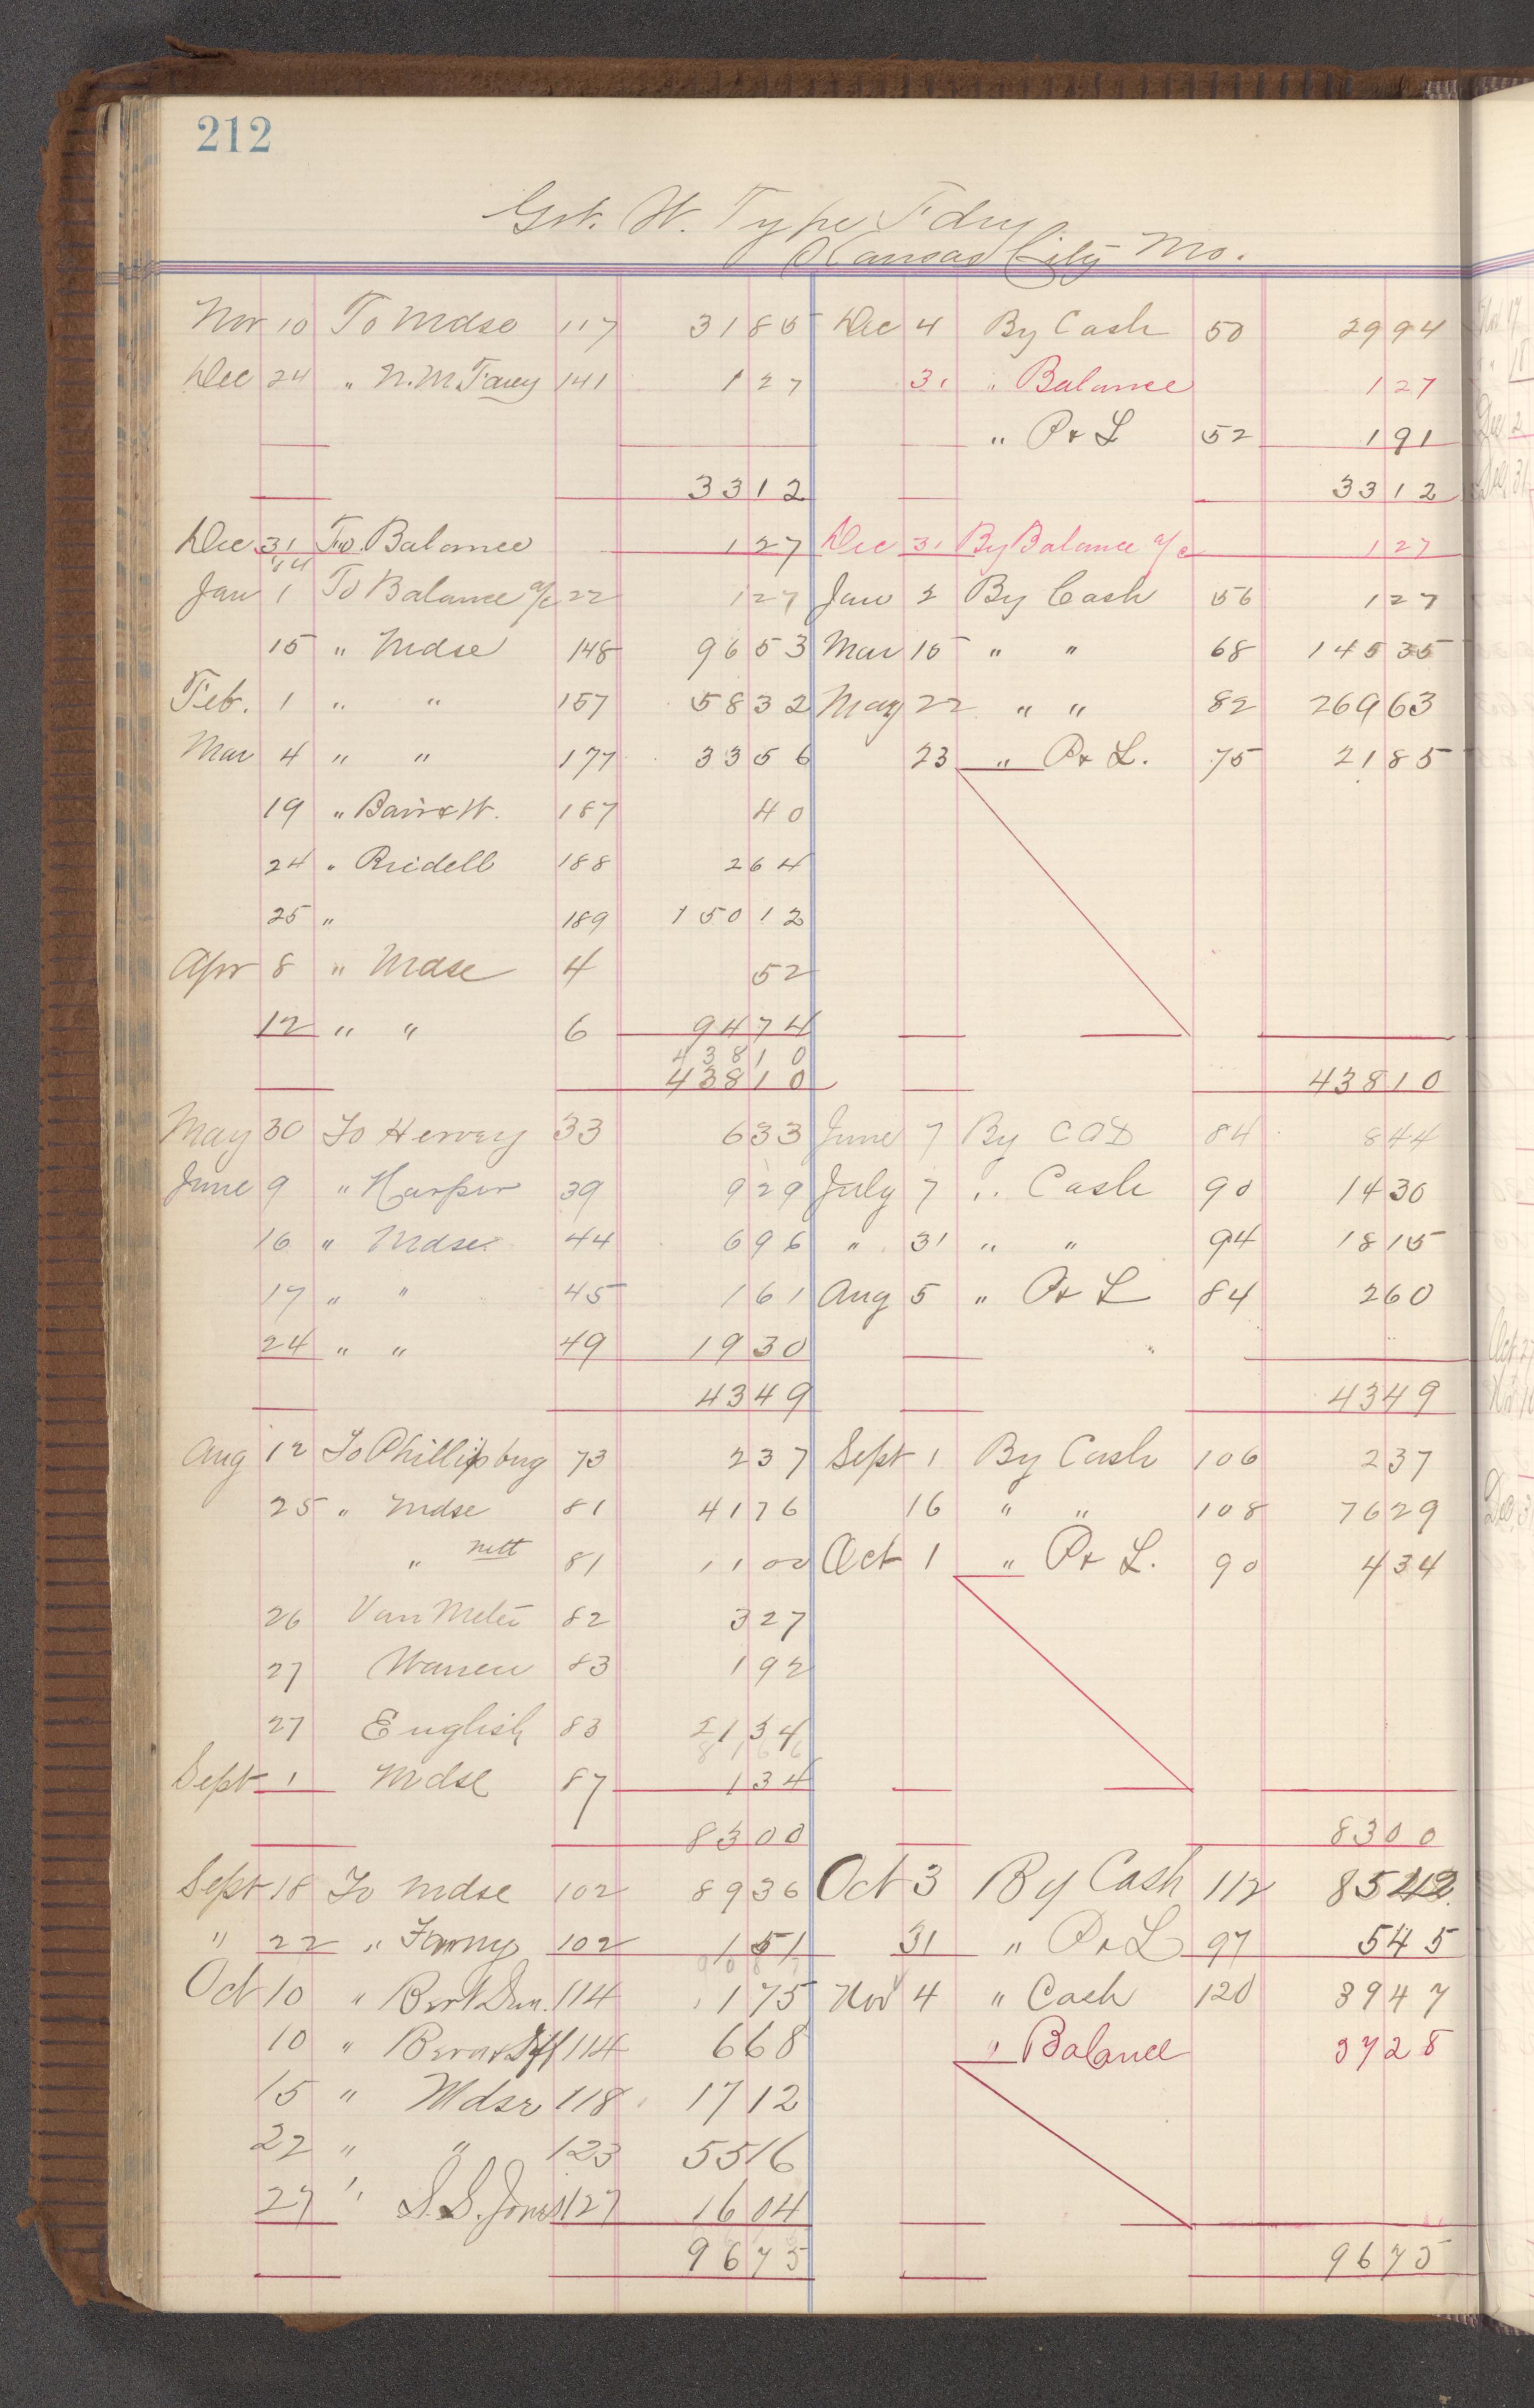 212
Grt. W. Type Fdry
Kansas City Mo.
Nov 10 To Mdse 117 31 85 Dec 4 By Cash 50 29 94
Dec 24 " N.M. Farey 141 1 27 31 " Balance 1 27
" P & L 52 1 91
33 12 33 12
Dec 31 To Balance 1 27 Dec 31 By Balance a/c 1 27
Jan 1 To Balance a/c 22 1 27 Jan 2 By Cash 56 1 27
15 " Mdse 148 96 53 Mar 15 " " 68 145 35
Feb. 1 " " 157 58 32 May 22 " " 82 269 63
Mar 4 " " 177 33 56 23 " P & L. 75 21 85
19 " Bair & W. 187 40
24 " Riedell 188 2 64
25 " 189 150 12
Apr 8 " Mdse 4 52
12 " " 6 94 74
438 10
438 10 438 10
May 30 To Hervey 33 6 33 June 7 By C A D 84 8 44
June 9 " Harper 39 9 29 July 7 " Cash 90 14 30
16 " Mdse 44 6 96 " 31 " " 94 18 15
17 " " 45 1 61 Aug 5 " P & L 84 2 60
24 " " 49 19 30
43 49 43 49
Aug 12 To Phillipsbug 73 2 37 Sept 1 By Cash 106 2 37
25 " Mdse 81 41 76 16 " " 108 76 29
" nett 81 11 00 Oct 1 " P & L. 90 4 34
26 Van Meter 82 3 27
27 Warren 83 1 92
27 English 83 21 34
81 66
Sept 1 Mdse 87 1 34
83 00 83 00
Sept 18 To Mdse 102 89 36 Oct 3 By Cash 112 85 42
" 22 " 102 1 51 31 " P & L 97 5 45
Oct 10 " 114 1 75 Nov 4 " Cash 120 39 47
10 " 114 6 68 " Balance 37 28
15 " Mdse 118 17 12
22 " " 123 55 16
27 " S. S. Jones 127 16 04
96 75 96 75